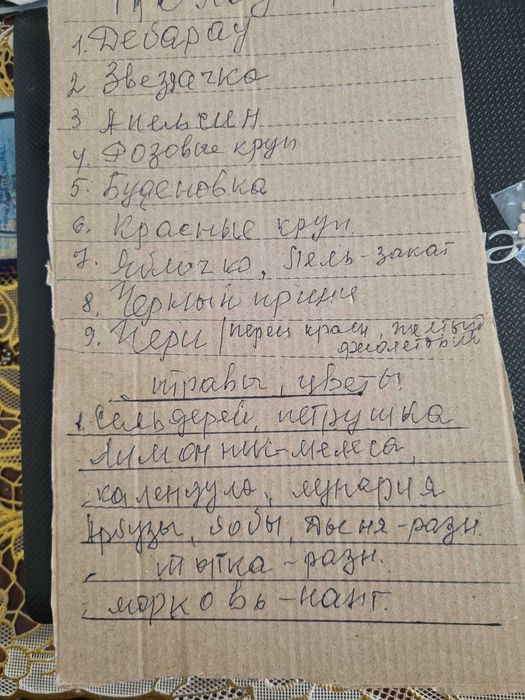 1. Дебарау
2 Звездачка
3 Апельсин
4. Розовые круп
5. Буденовка
6. Красные круп.
7. Яблочко, Лель-закат
8. Черный принц
9. Чери / перец красн, желтый
травы, цветы!
1. Сельдерей, петрушка
Лимонник-мелеса,
календула, лунария
Арбузы, бобы, Дыня-разн.
тытка-разн.
морковь-нант.